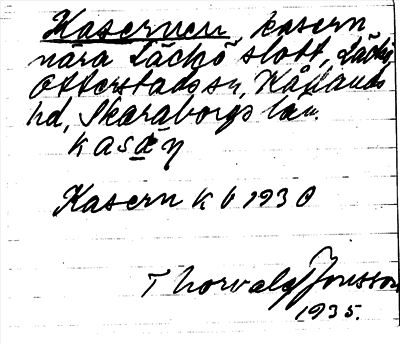 Kasernen, kasern
nära Läckö slott, Läckö,
Otterstads sn, Kållands
hd, Skaraborgs län.
kasä̱ɳ
Kasern K b 1930
Thorvald Jonsson
1935.